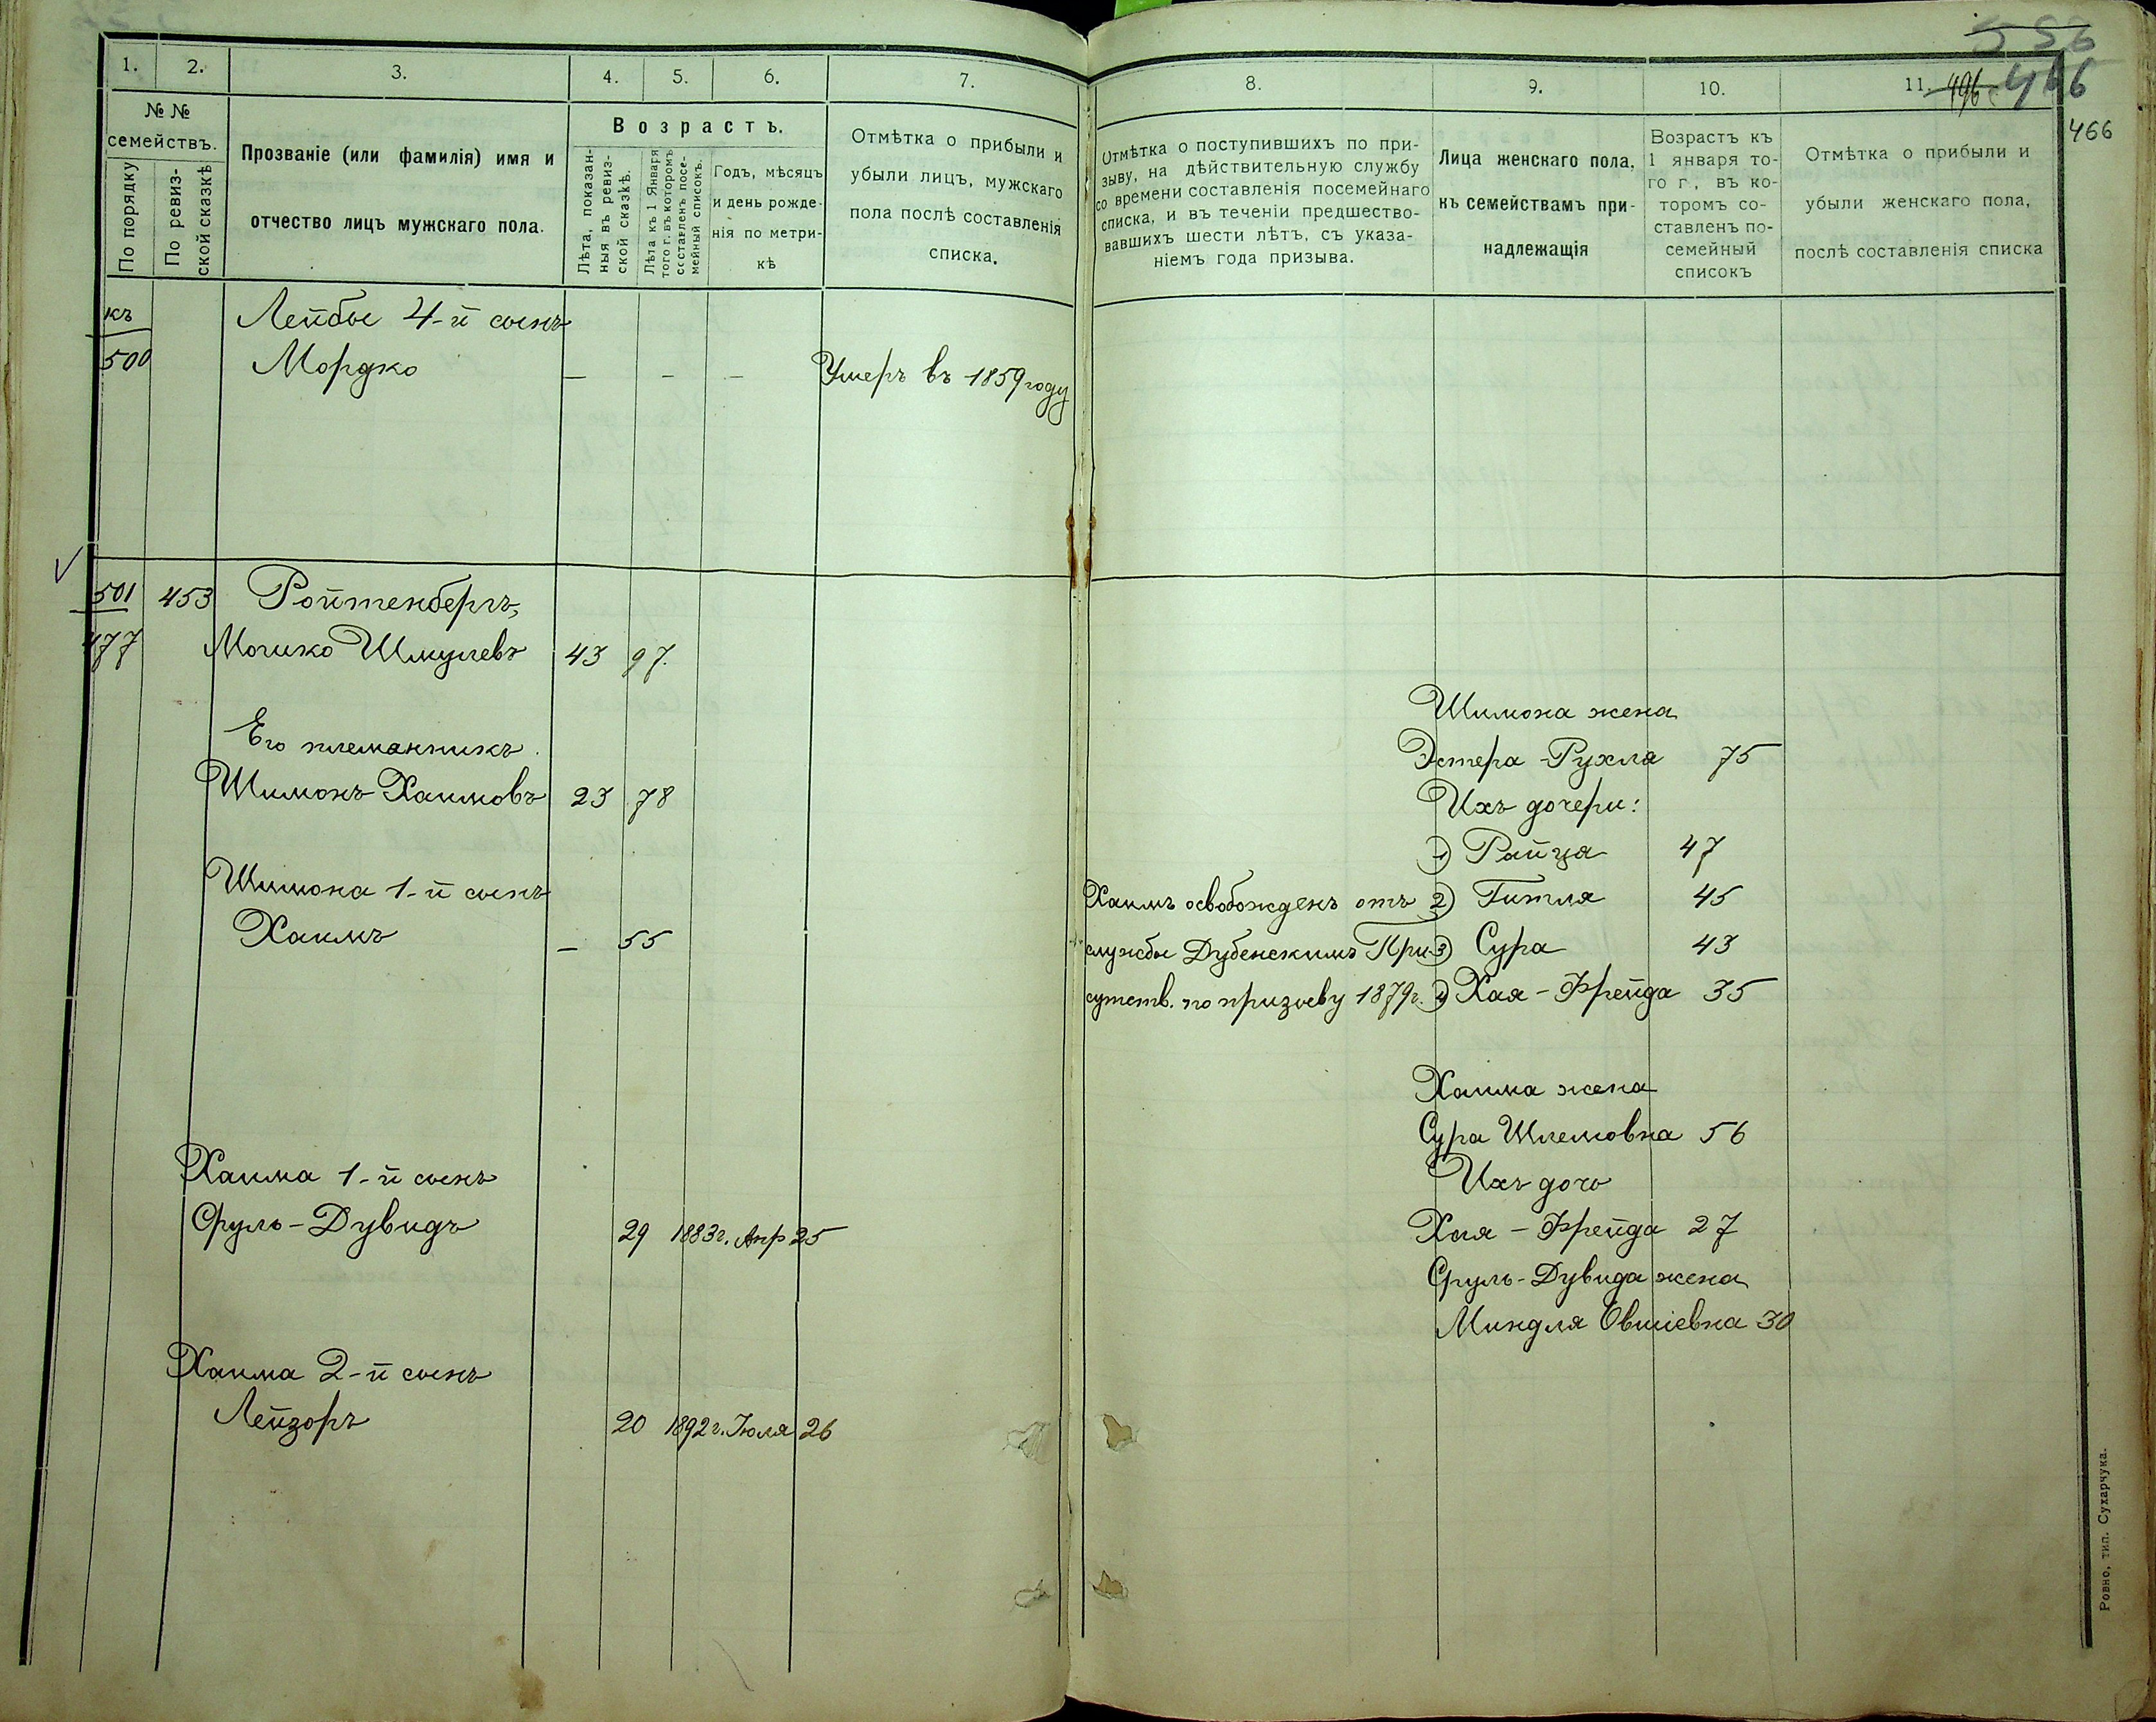 556
1.
2.
3.
4.
5.
6.
7.
8.
9.
10.
11.
496
466
466
№ №
семействъ.
По порядку
По ревиз-
ской сказкѣ
Прозваніе (или фамилія) имя и
отчество лицъ мужскаго пола.
Возрастъ.
Лѣта, показан-
ныя въ ревиз-
ской сказкѣ.
Лѣта къ 1 Января
того г. въ которомъ
составленъ посе-
мейный списокъ.
Годъ, мѣсяцъ
и день рожде-
нія по метри-
кѣ
Отмѣтка о прибыли и
убыли лицъ, мужскаго
пола послѣ составленія
списка.
Отмѣтка о поступившихъ по при-
зыву, на дѣйствительную службу
со времени составленія посемейнаго
списка, и въ теченіи предшество-
вавшихъ шести лѣтъ, съ указа-
ніемъ года призыва.
Лица женскаго пола,
къ семействамъ при-
надлежащія
Возрастъ къ
1 января то-
го г., въ ко-
торомъ со-
ставленъ по-
семейный
списокъ
Отмѣтка о прибыли и
убыли женскаго пола,
послѣ составленія списка
къ
500
Лейбы 4-й сынъ
Мордко — — — Умеръ въ 1859 году
501 453 Ройтенбергъ,
477 Мошко Шмулевъ 43 97.
Его племянникъ.
Шимонъ Хаимовъ 23 78
Шимона 1-й сынъ
Хаимъ — 55
Хаима 1-й сынъ
Сруль-Дувидъ 29 1883г. Апр 25
Хаима 2-й сынъ
Лейзоръ 20 1892г. Іюля 26
Хаимъ освобожденъ отъ
службы Дубенскимъ При-
сутств. по призыву 1879г.
Шимона жена
Эстера-Рухля 75
Ихъ дочери:
1) Райця 47
2) Гитля 45
3) Сура 43
4) Хая-Фрейда 35
Хаима жена
Сура Шлемовна 56
Ихъ дочь
Хая-Фрейда 27
Сруль-Дувида жена
Миндля Овшіевна 30
Ровно, тип. Сухарчука.